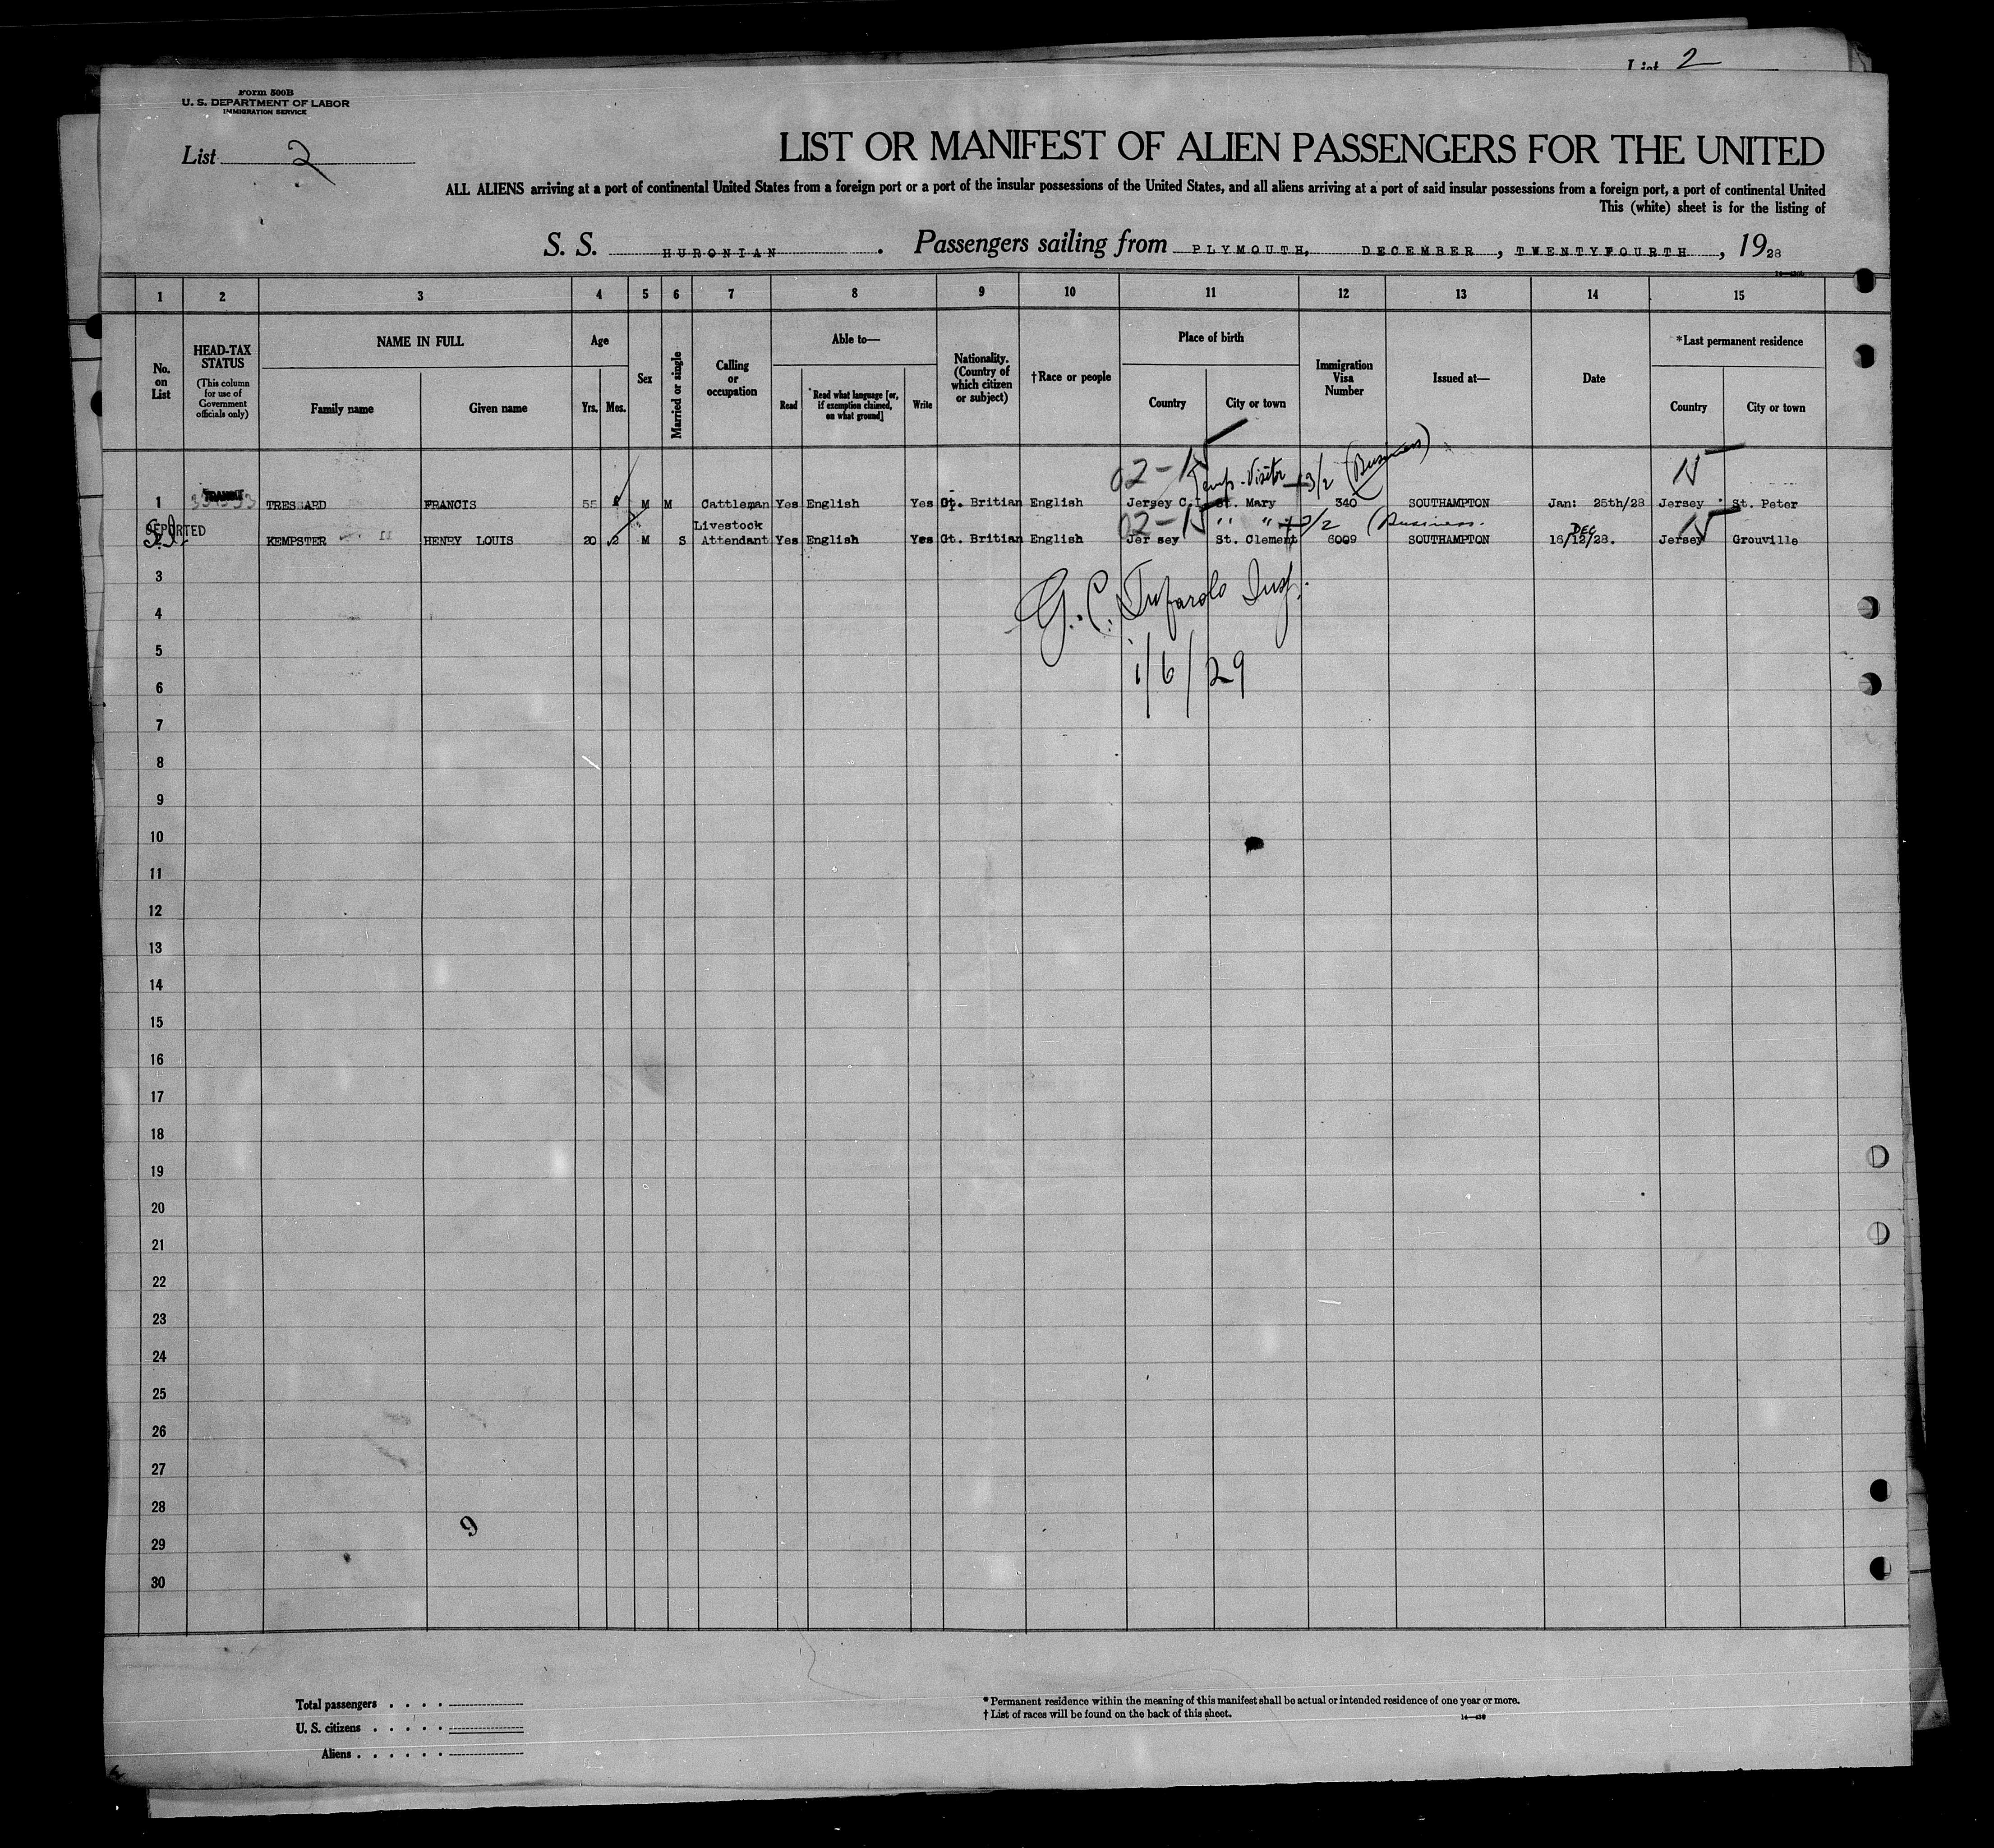 List 2
Form 500B
U. S. DEPARTMENT OF LABOR
IMMIGRATION SERVICE
List 2
LIST OR MANIFEST OF ALIEN PASSENGERS FOR THE UNITED
ALL ALIENS arriving at a port of continental United States from a foreign port or a port of the insular possessions of the United States, and all aliens arriving at a port of said insular possessions from a foreign port, a port of continental United
This (white) sheet is for the listing of
S. S. HURONIAN. Passengers sailing from PLYMOUTH, DECEMBER, TWENTYFOURTH, 1928
1 2 3 4 5 6 7 8 9 10 11 12 13 14 15
No. on List
HEAD-TAX STATUS
(This column for use of Government officials only)
NAME IN FULL
Family name Given name
Age
Yrs. Mos.
Sex
Married or single
Calling or occupation
Able to—
Read
*Read what language [or, if exemption claimed, on what ground]
Write
Nationality. (Country of which citizen or subject)
†Race or people
Place of birth
Country City or town
Immigration Visa Number
Issued at—
Date
*Last permanent residence
Country City or town
02-15 Temp. Visitor 3/2 (Business) 15
1 TRANSIT FRANCIS 55 M M Cattleman Yes English Yes Gt. Britian English Jersey C.I. St. Mary 340 SOUTHAMPTON Jan: 25th/28 Jersey St. Peter
DEPORTED Livestock 02-15 " " 3/2 (Business. DEC 15
2 KEMPSTER HENRY LOUIS 20 2 M S Attendant Yes English Yes Gt. Britian English Jersey St. Clement 6009 SOUTHAMPTON 18/12/28. Jersey Grouville
3
4
G. C. Insp.
5
6
1/6/29
7
8
9
10
11
12
13
14
15
16
17
18
19
20
21
22
23
24
25
26
27
28
9
29
30
Total passengers . . . .
U. S. citizens . . . . .
Aliens . . . . . .
* Permanent residence within the meaning of this manifest shall be actual or intended residence of one year or more.
† List of races will be found on the back of this sheet.